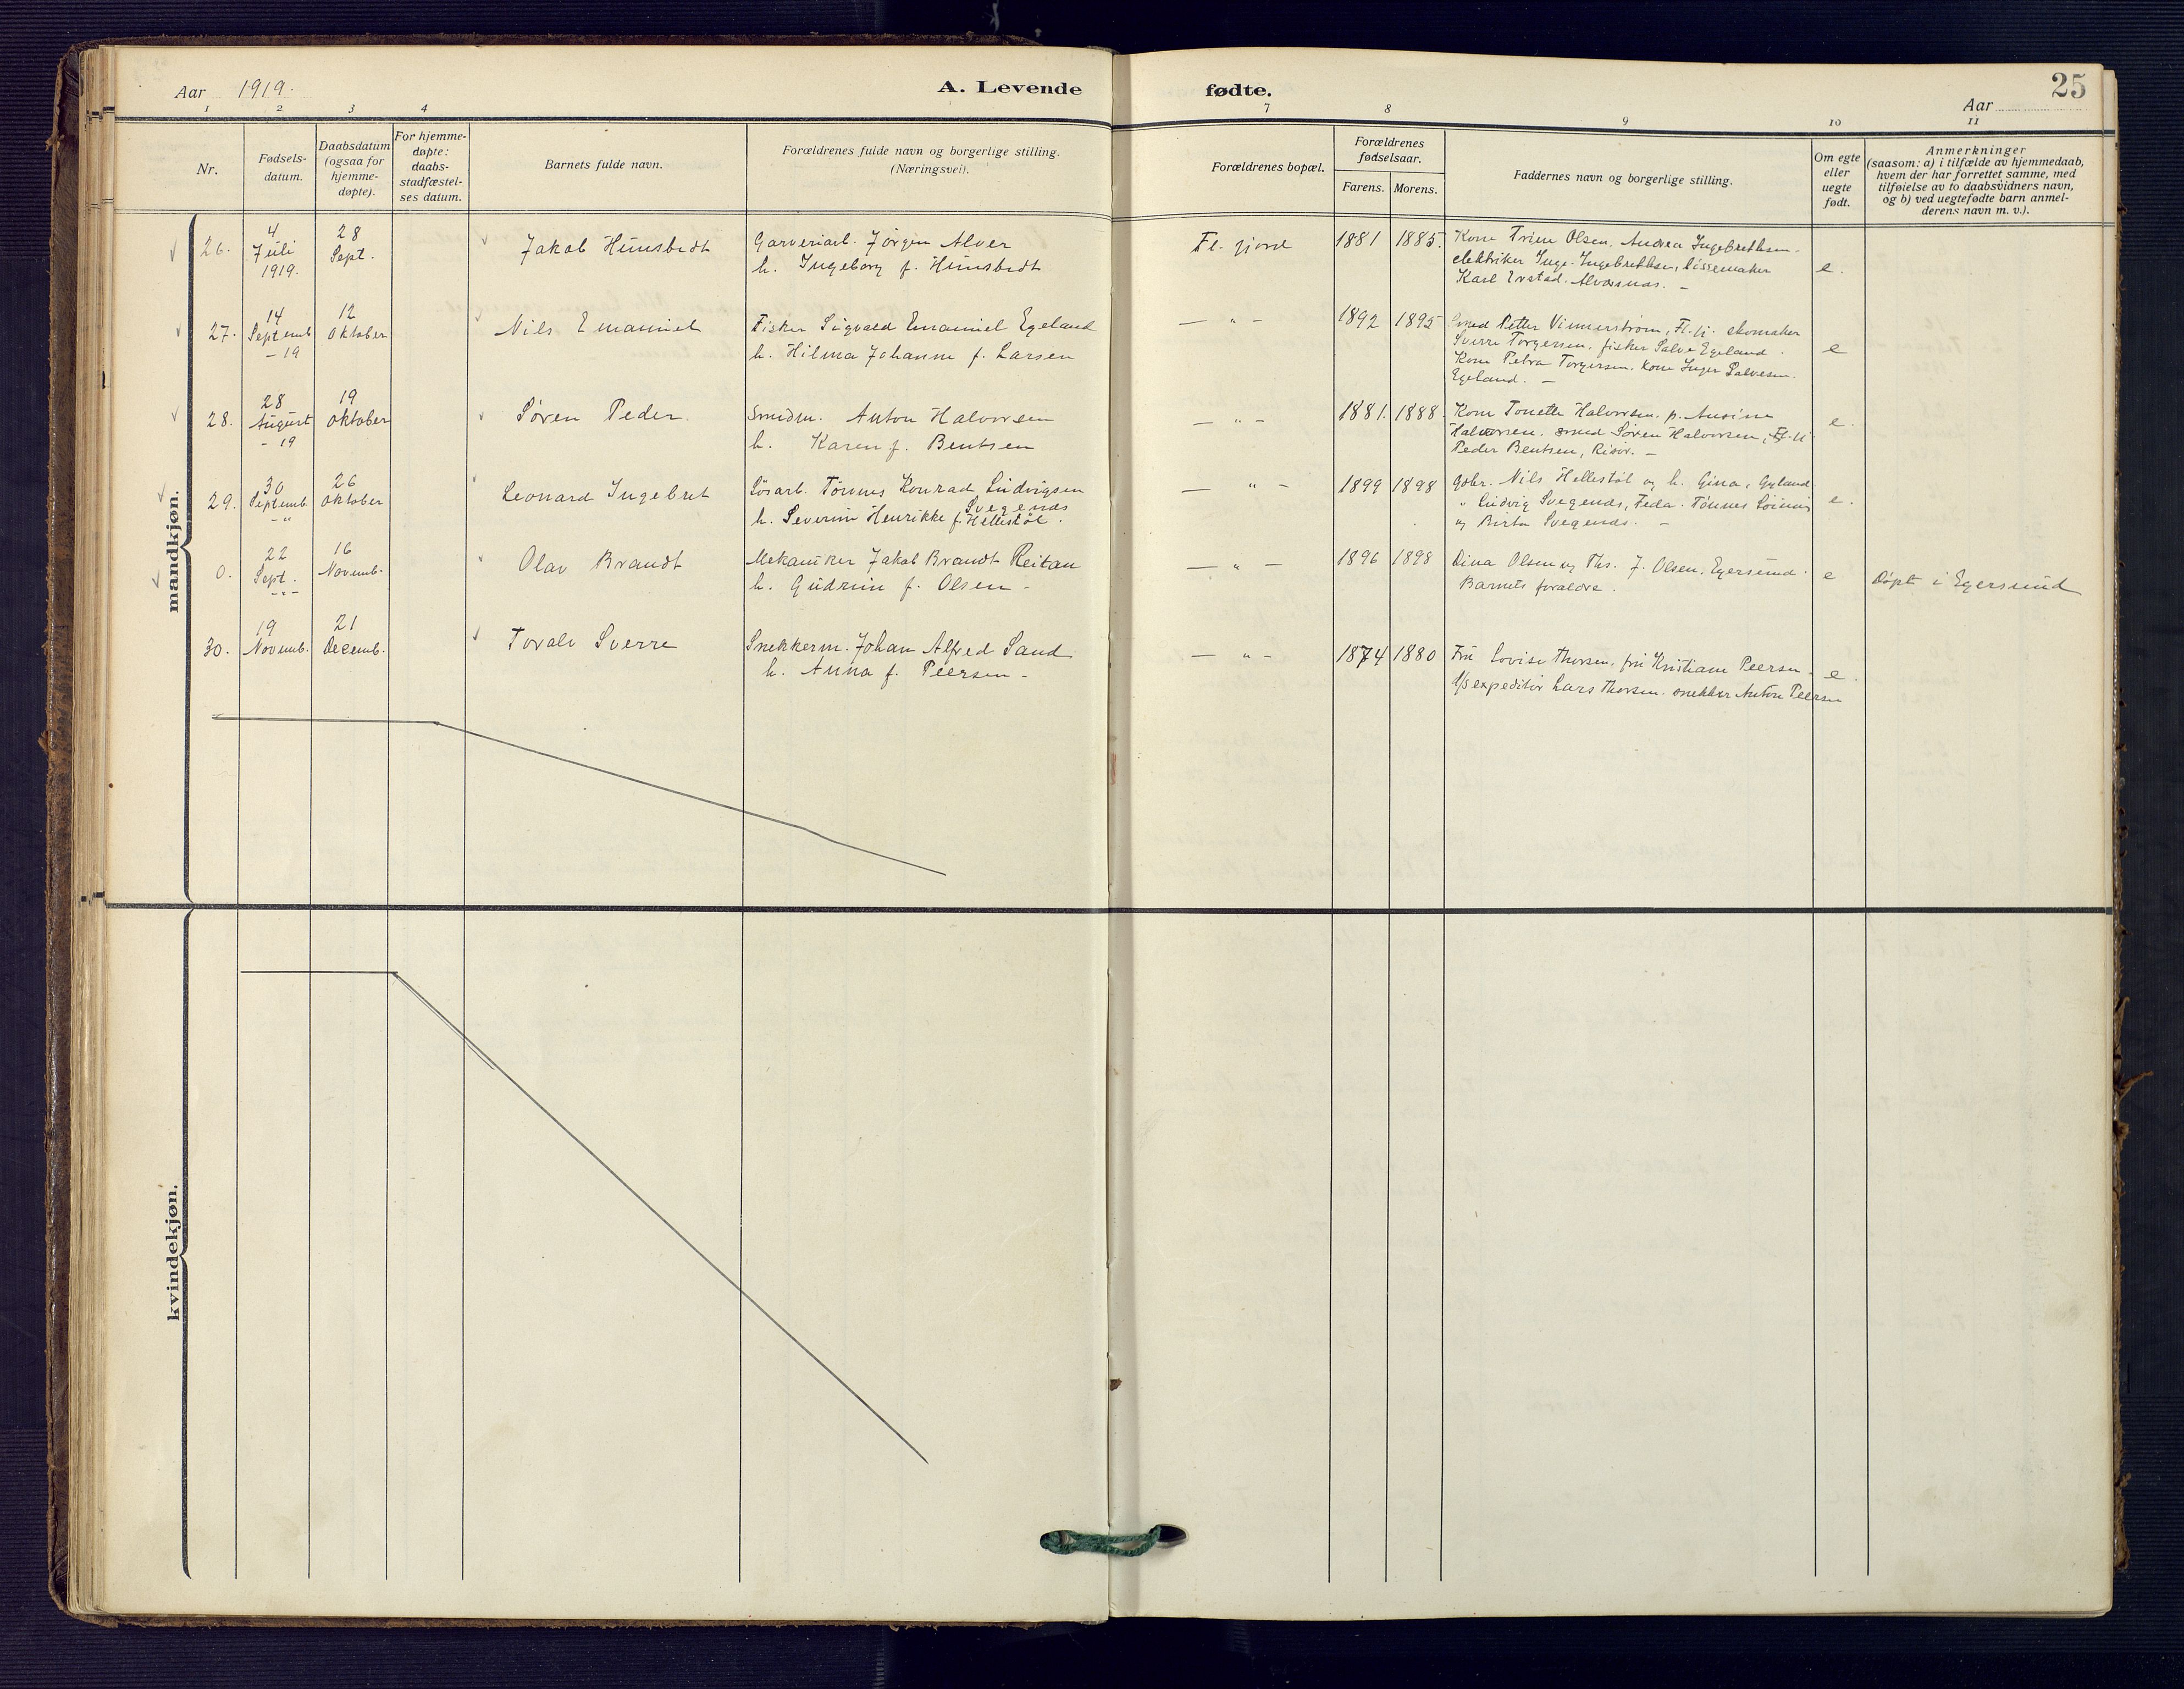 Aar 1919.
A. Levende fødte.
25
Aar
1 2 3 4 7 8 9 10 11
Nr.
Fødsels-
datum.
Daabsdatum
(ogsaa for
hjemme-
døpte).
For hjemme-
døpte:
daabs-
stadfæstel-
ses datum.
Barnets fulde navn.
Forældrenes fulde navn og borgerlige stilling.
(Næringsvei).
Forældrenes bopæl.
Forældrenes
fødselsaar.
Farens. Morens.
Faddernes navn og borgerlige stilling.
Om egte
eller
uegte
født.
Anmerkninger
(saasom: a) i tilfælde av hjemmedaab,
hvem der har forrettet samme, med
tilføielse av to daabsvidners navn,
og b) ved uegtefødte barn anmel-
derens navn m. v.).
mandkjøn.
26.
4
Juli
1919.
28
Sept.
Jakob Hunsbedt
Garveriarb. Jørgen Alver
h. Ingeborg f. Hunsbedt
Fl. fjord
1881 1885.
Kone Trine Olsen. Andrea Ingebrethsen.
elektriker Inge. Ingebrethsen,
Karl Erstad. Alvæsnas. –
e.
27.
14
Septemb
– 19
12
Oktober
Nils Emanuel
Fisker Sigvald Emanuel Egeland
h. Hilma Johanne f. Larsen
— " –
1892 1895
Smed Petter Vinnerstrøm, Fl.fj. skomaker
Sverre Torgersen. fisker Salve Egeland.
Kone Petra Torgersen. Kone Inger Salvesen
Egeland. –
e
28.
28
August
– 19
19
Oktober
Søren Peder
Smedm. Anton Halvorsen
h. Karen f. Bentsen
— " –
1881. 1888.
Kone Tonette Halvorsen. p. Ansine
Halvorsen. smed Søren Halvorsen, Fl.fj.
Peder Bentsen, Risør. –
e.
29.
30
Septemb
– " –
26
Oktober
Leonard Ingebret
Løsarb. Tønnes Konrad Ludvigsen
Svegends
h. Severin Henrikke f. Hellestøl.
— " –
1899 1898
Gbr. Nils Hellestøl og h. Gina, Gyland
" Ludvig Svegends, Feda. Tønnes
og Birta Svegends. –
e.
0.
22
Sept.
– " –
16
Novemb.
Olav Brandt
Mekaniker Jakob Brandt Reitan
h. Gudrun f. Olsen –
— " –
1896 1898
Dina Olsen og Ths. J. Olsen. Egersund.
Barnets forældre.
e
Døpt i Egersund
30.
19
Novemb.
21
Decemb.
Toralv Sverre
Snekkerm. Johan Alfred Sand
h. Anna f. Peersen –
— " –
1874 1880
Fru Lovise Thorsen, fru Kristiane Peersen.
D/S expeditør Lars Thorsen. snekker Anton Peersen
e.
kvindekjøn.